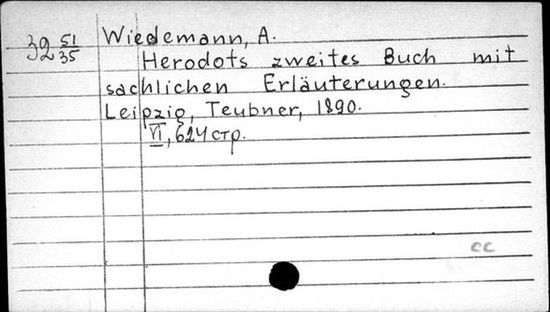 39 51/35 Wiedemann, A.
Herodots zweites Buch mit
sachlichen Erläuterungen.
Leipzig, Teubner, 1890.
VI, 624 стр.
cc